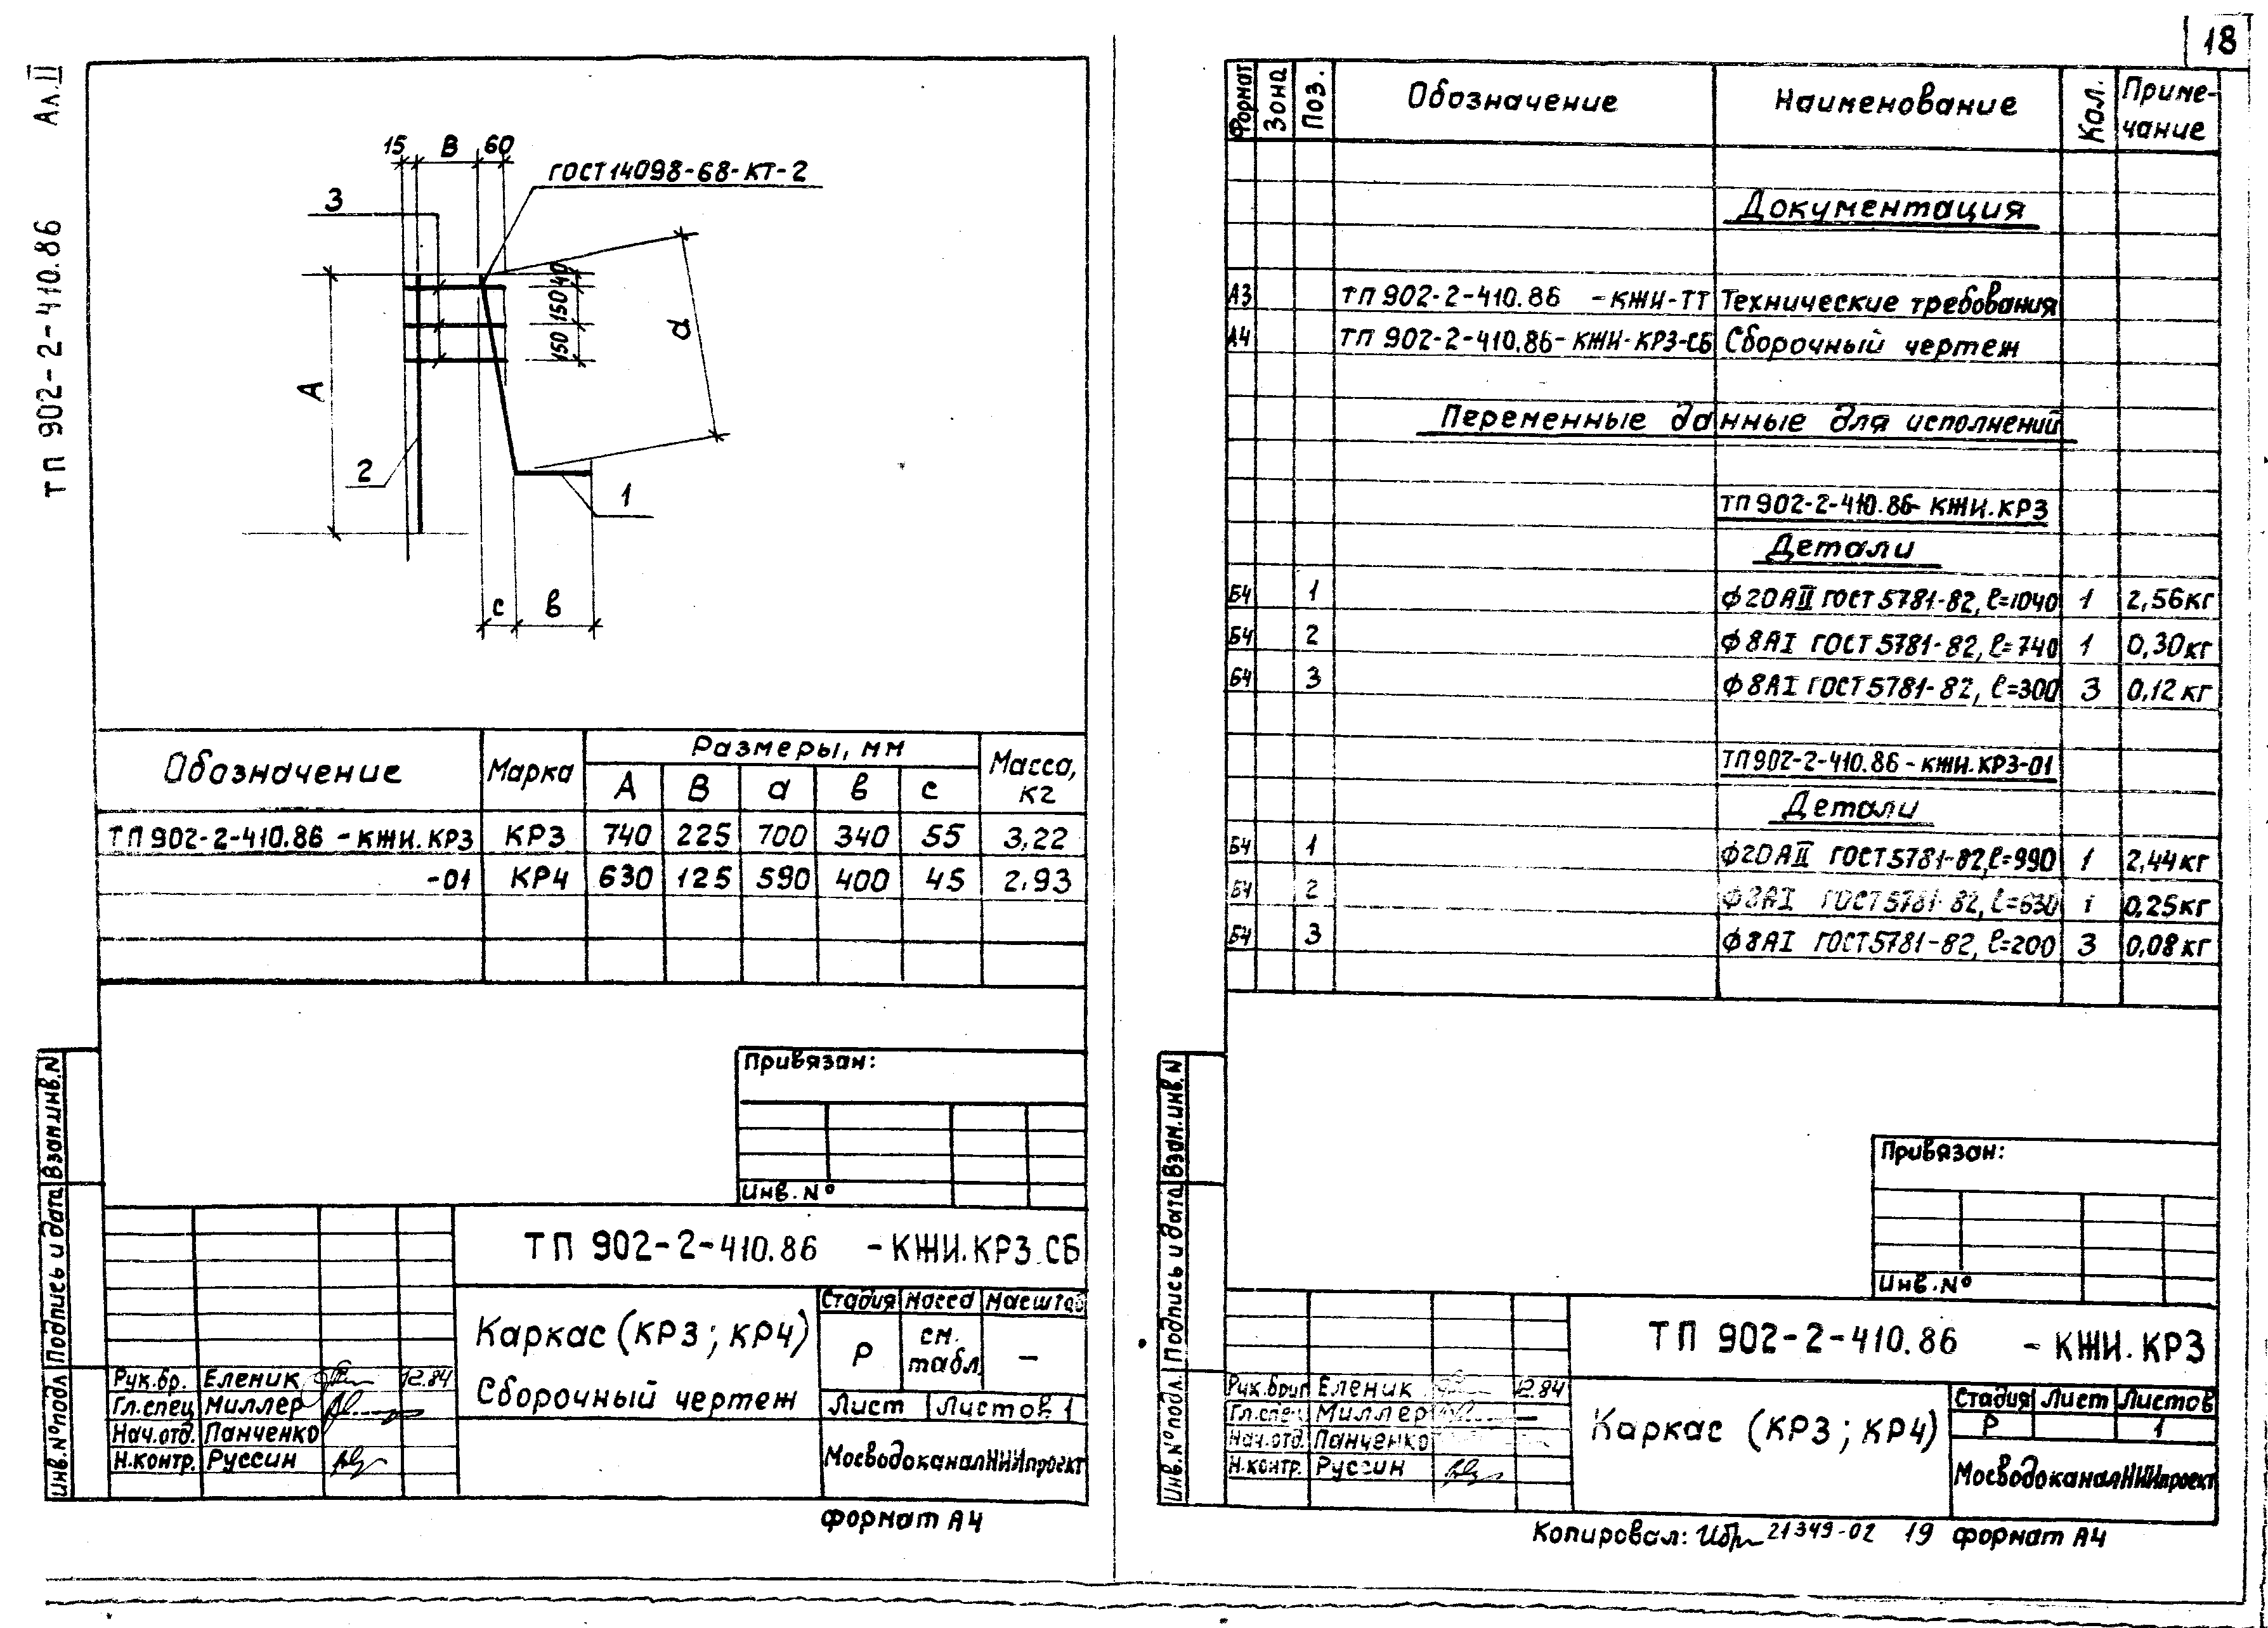 18
ТП 902-2-410.86 Ал.II
15 В 60
ГОСТ 14098-68-КТ-2
3
40
150
150
А
d
2
1
с в
Обозначение Марка Размеры, мм Масса, кг
А В а в с
ТП 902-2-410.86 -КЖИ.КР3 КР3 740 225 700 340 55 3,22
-01 КР4 630 125 590 400 45 2.93
Привязан:
Инв. №
ТП 902-2-410.86 -КЖИ.КР3.СБ
Каркас (КР3; КР4)
Сборочный чертеж
Стадия Масса Масштаб
Р см. табл. –
Лист Листов 1
МосводоканалНИИпроект
Рук.бр. Еленик 12.84
Гл.спец Миллер
Нач.отд. Панченко
Н.контр. Руссин
Инв.№подл. Подпись и дата Взам.инв.N
формат А4
Формат Зона Поз. Обозначение Наименование Кол. Приме-
чание
Документация
А3 ТП 902-2-410.86 -КЖИ-ТТ Технические требования
А4 ТП 902-2-410.86-КЖИ-КР3-СБ Сборочный чертеж
Переменные данные для исполнений
ТП 902-2-410.86-КЖИ.КР3
Детали
Б4 1 Ф20АII ГОСТ 5781-82, ℓ=1040 1 2,56кг
Б4 2 Ф8АI ГОСТ 5781-82, ℓ=740 1 0,30кг
Б4 3 Ф8АI ГОСТ 5781-82, ℓ=300 3 0,12кг
ТП 902-2-410.86-КЖИ.КР3-01
Детали
Б4 1 Ф20АII ГОСТ 5781-82, ℓ=990 1 2,44кг
Б4 2 Ф8АI ГОСТ 5781-82, ℓ=630 1 0,25кг
Б4 3 Ф8АI ГОСТ 5781-82, ℓ=200 3 0,08кг
Привязан:
Инв. №
ТП 902-2-410.86 -КЖИ.КР3
Рук.бриг Еленик 12.84
Гл.спец Миллер
Нач.отд. Панченко
Н.контр. Руссин
Каркас (КР3; КР4)
Стадия Лист Листов
Р 1
МосводоканалНИИпроект
Инв.№подл. Подпись и дата Взам.инв.N
Копировал: 21349-02 19 формат А4